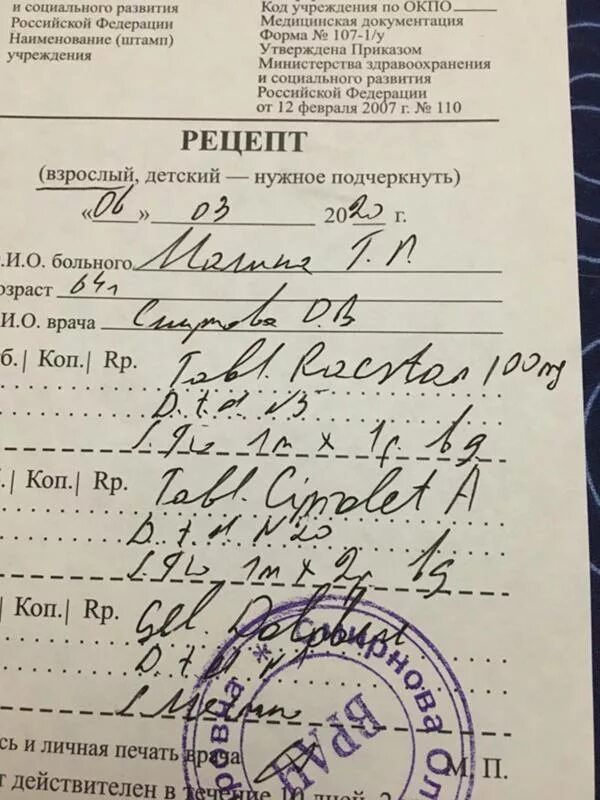 и социального развития
Российской Федерации
Наименование (штамп)
учреждения
Код учреждения по ОКПО
Медицинская документация
Форма № 107-1/у
Утверждена Приказом
Министерства здравоохранения
и социального развития
Российской Федерации
от 12 февраля 2007 г. № 110
РЕЦЕПТ
(взрослый, детский — нужное подчеркнуть)
«06» 03 2020 г.
.И.О. больного Т. П.
озраст 64л
И.О. врача Смирнова О.В
б.| Коп.| Rp. Tabl. 100 mg
D. t. d. N5
S. По 1т х 1р. в д
.| Коп.| Rp. Tabl. Ciprolet A
D. t. d. N 20
S. По 1т х 2р в д
| Коп.| Rp. Gel.
D. t. d. N1
S.
сь и личная печать врача М. П.
т действителен в течение 10 дней, 2
Смирнова Ол
ровна *
ВРАЧ